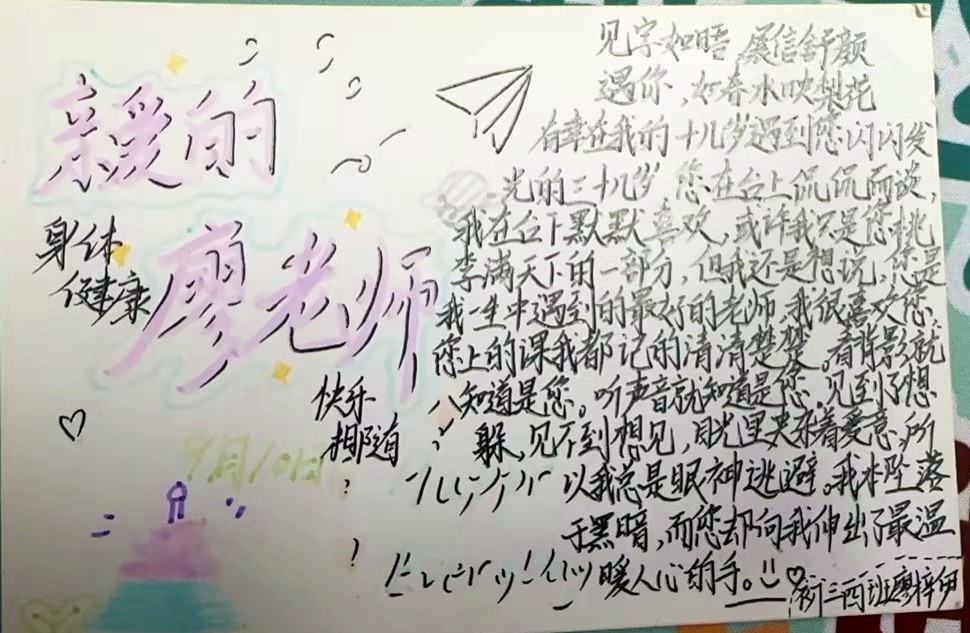 亲爱的
廖老师
身体
健康
快乐
相随
9月10日
见字如晤 展信舒颜
遇你,如春水吹梨花
有幸在我的十几岁遇到您闪闪发
光的二十几岁 您在台上侃侃而谈,
我在台下默默喜欢,或许我只是您桃
李满天下的一部分,但我还是想说,您是
我一生中遇到的最好的老师,我很喜欢您
您上的课我都记的清清楚楚。看背影就
知道是您。听声音就知道是您。见到了想
躲,见不到想见,目光里夹杂着爱意,所
以我总是眼神逃避。我本坠落
于黑暗,而您却向我伸出了最温
暖人心的手。
初三四班廖梓伊